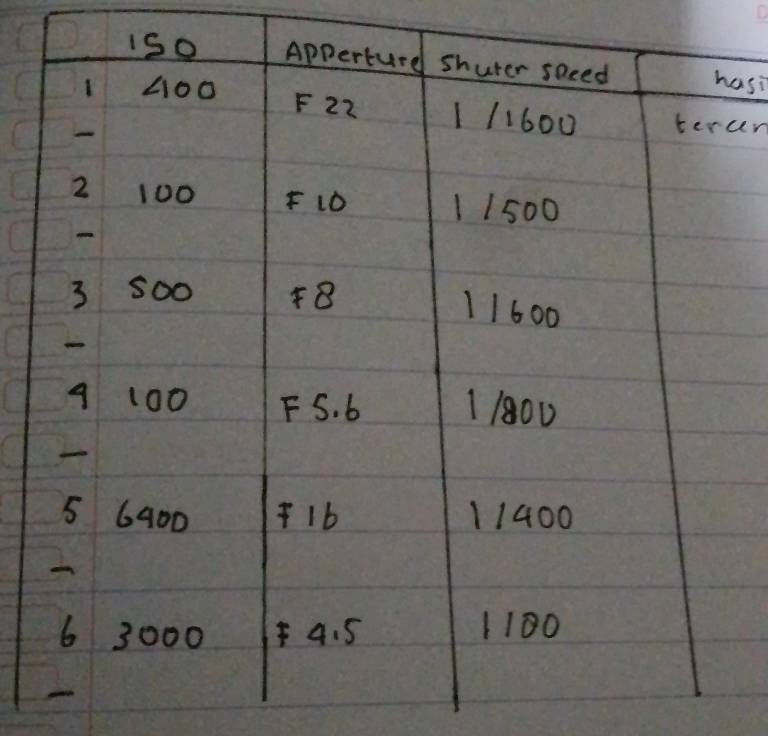 ISO Apperture Shuter speed hasi
1 400 F 22 1/1600 tercen
-
2 100 F 10 1/500
-
3 500 F8 1/600
-
4 100 F 5.6 1/800
-
5 6400 F 16 1/400
-
6 3000 F 4.5 1/80
-